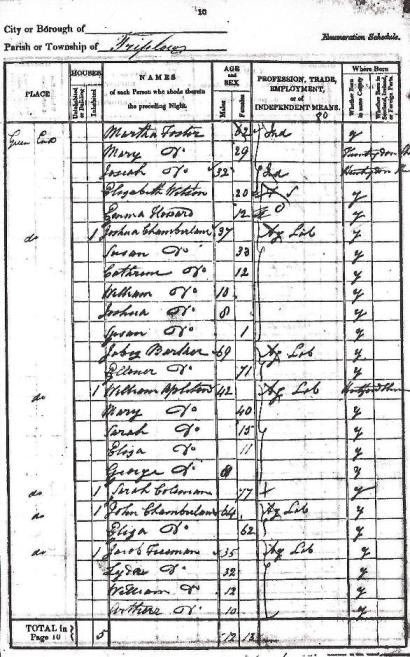 10
City or Borough of
Parish or Township of Triplow
Enumeration Schedule.
PLACE
HOUSES
Uninhabited or Building
Inhabited
NAMES of each Person who abode therein the preceding Night.
AGE and SEX
Males
Females
PROFESSION, TRADE, EMPLOYMENT, or of INDEPENDENT MEANS.
Where Born
Whether Born in same County
Whether Born in Scotland, Ireland, or Foreign Parts.
Martha Foster 62 Ind y
Mary Do 29
Josiah Do 32 Ind
Elizabeth Watson 20 S y
Emma Howard 12 y
do 1 Joshua Chamberlain 37 Ag Lab y
Susan Do 33 y
Cathrine Do 12 y
William Do 10 y
Joshua Do 8 y
Susan Do 1 y
Jabez Barker 69 Ag Lab y
Ellenor Do 71 y
do 1 William Apleton 42 Ag Lab
Mary Do 40 y
Sarah Do 15 y
Eliza Do 11 y
George Do 8 y
do 1 Sarah Coleman 77 y
do 1 John Chamberlain 64 Ag Lab y
Eliza Do 62 y
do 1 Jacob Freeman 35 Ag Lab y
Lydia Do 32 y
William Do 12 y
Do 10 y
TOTAL in Page 10 5 12 13